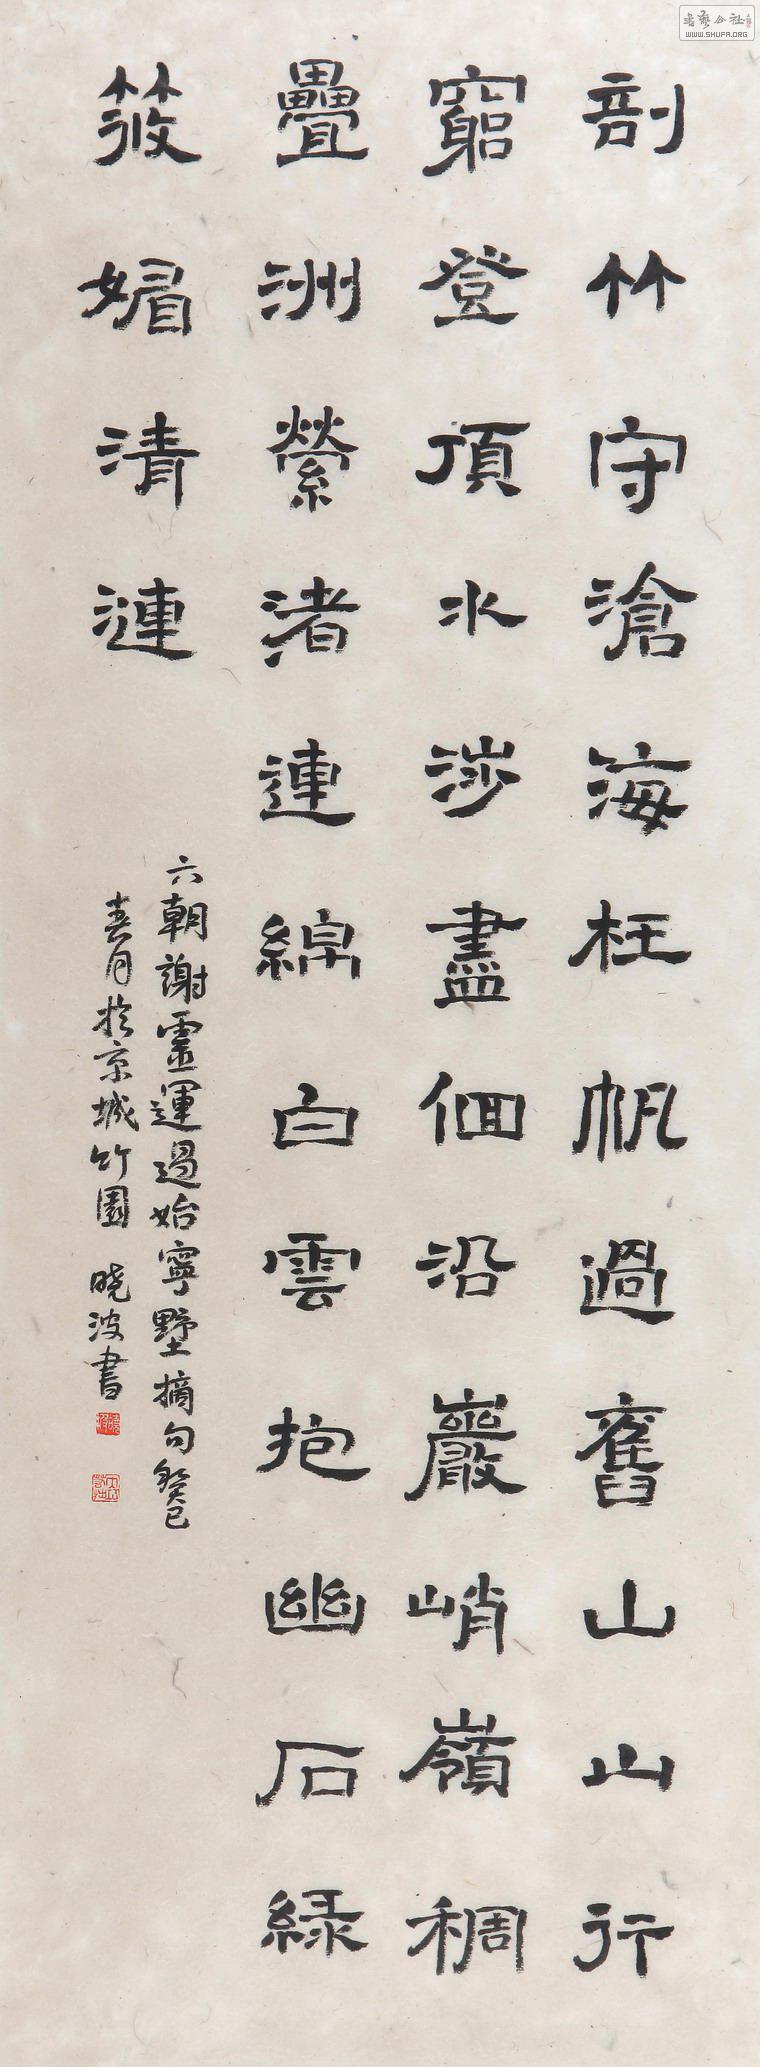 剖竹守滄海枉帆過舊山山行
窮登頂水涉盡洄沿巖峭嶺稠
疊洲縈渚連綿白雲抱幽石綠
筱媚清漣
六朝謝靈運過始寧墅摘句癸巳
春月於京城竹園 曉波書
WWW.SHUFA.ORG